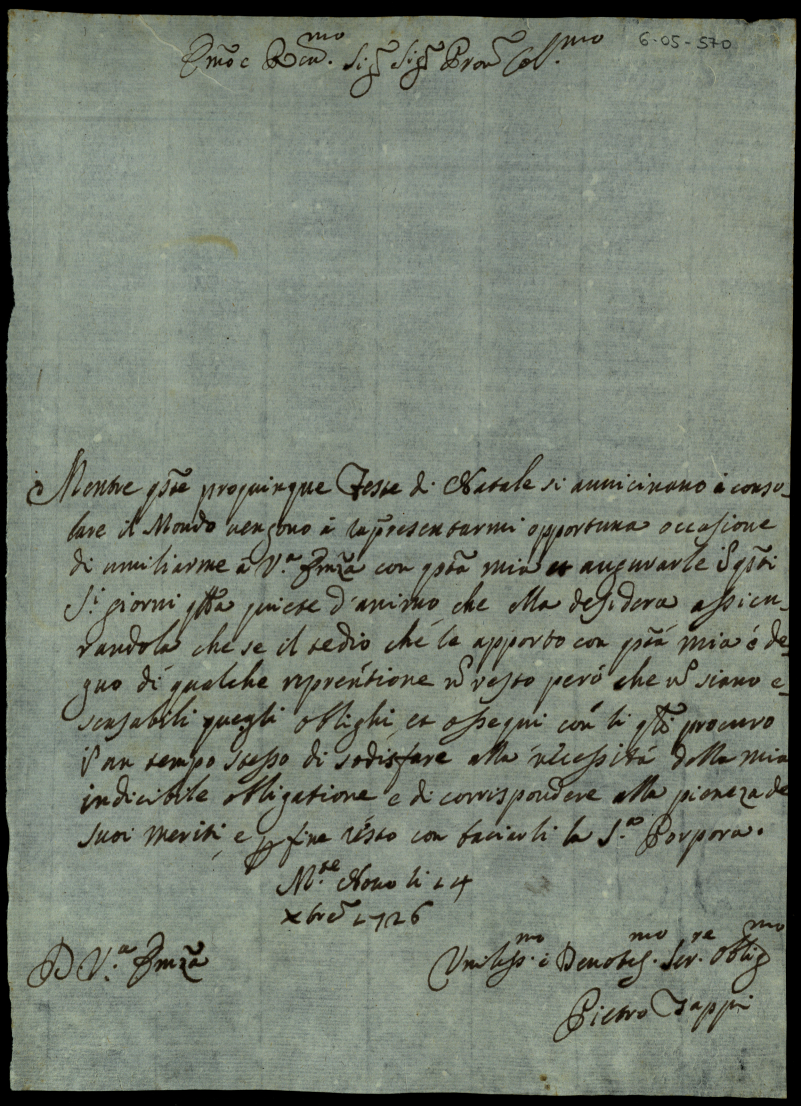 Emo e Rmo. Sigr Sigr Pron Col.mo
6-05-570
Mentre qste proquinque Feste di Natale si auuicinano à conso-
lare il Mondo uengono à rapresentarmi opportuna occasione
di umiliarme à V.a Emza con qsta mia et augurarle i qsti
S.i giorni qlla quiete d'animo che ella desidera assicu-
randola che se il tedio che le apporto con qsta mia è de-
gno di qualche reprentione ñ resto però che ñ siano e-
scusabili quegli oblighi et ossequi con li qli procuro
i un tempo stesso di sodisfare alla necessità della mia
indicibile obligatione e di corrispondere alla pieneza de
suoi meriti, e p fine resto con baciarli la S.a Porpora.
M.te Nouo li 14
Xbre 1726
D V.a Emza
Umiliss.mo e Deuotis.mo Ser.re Oblig.mo
Pietro